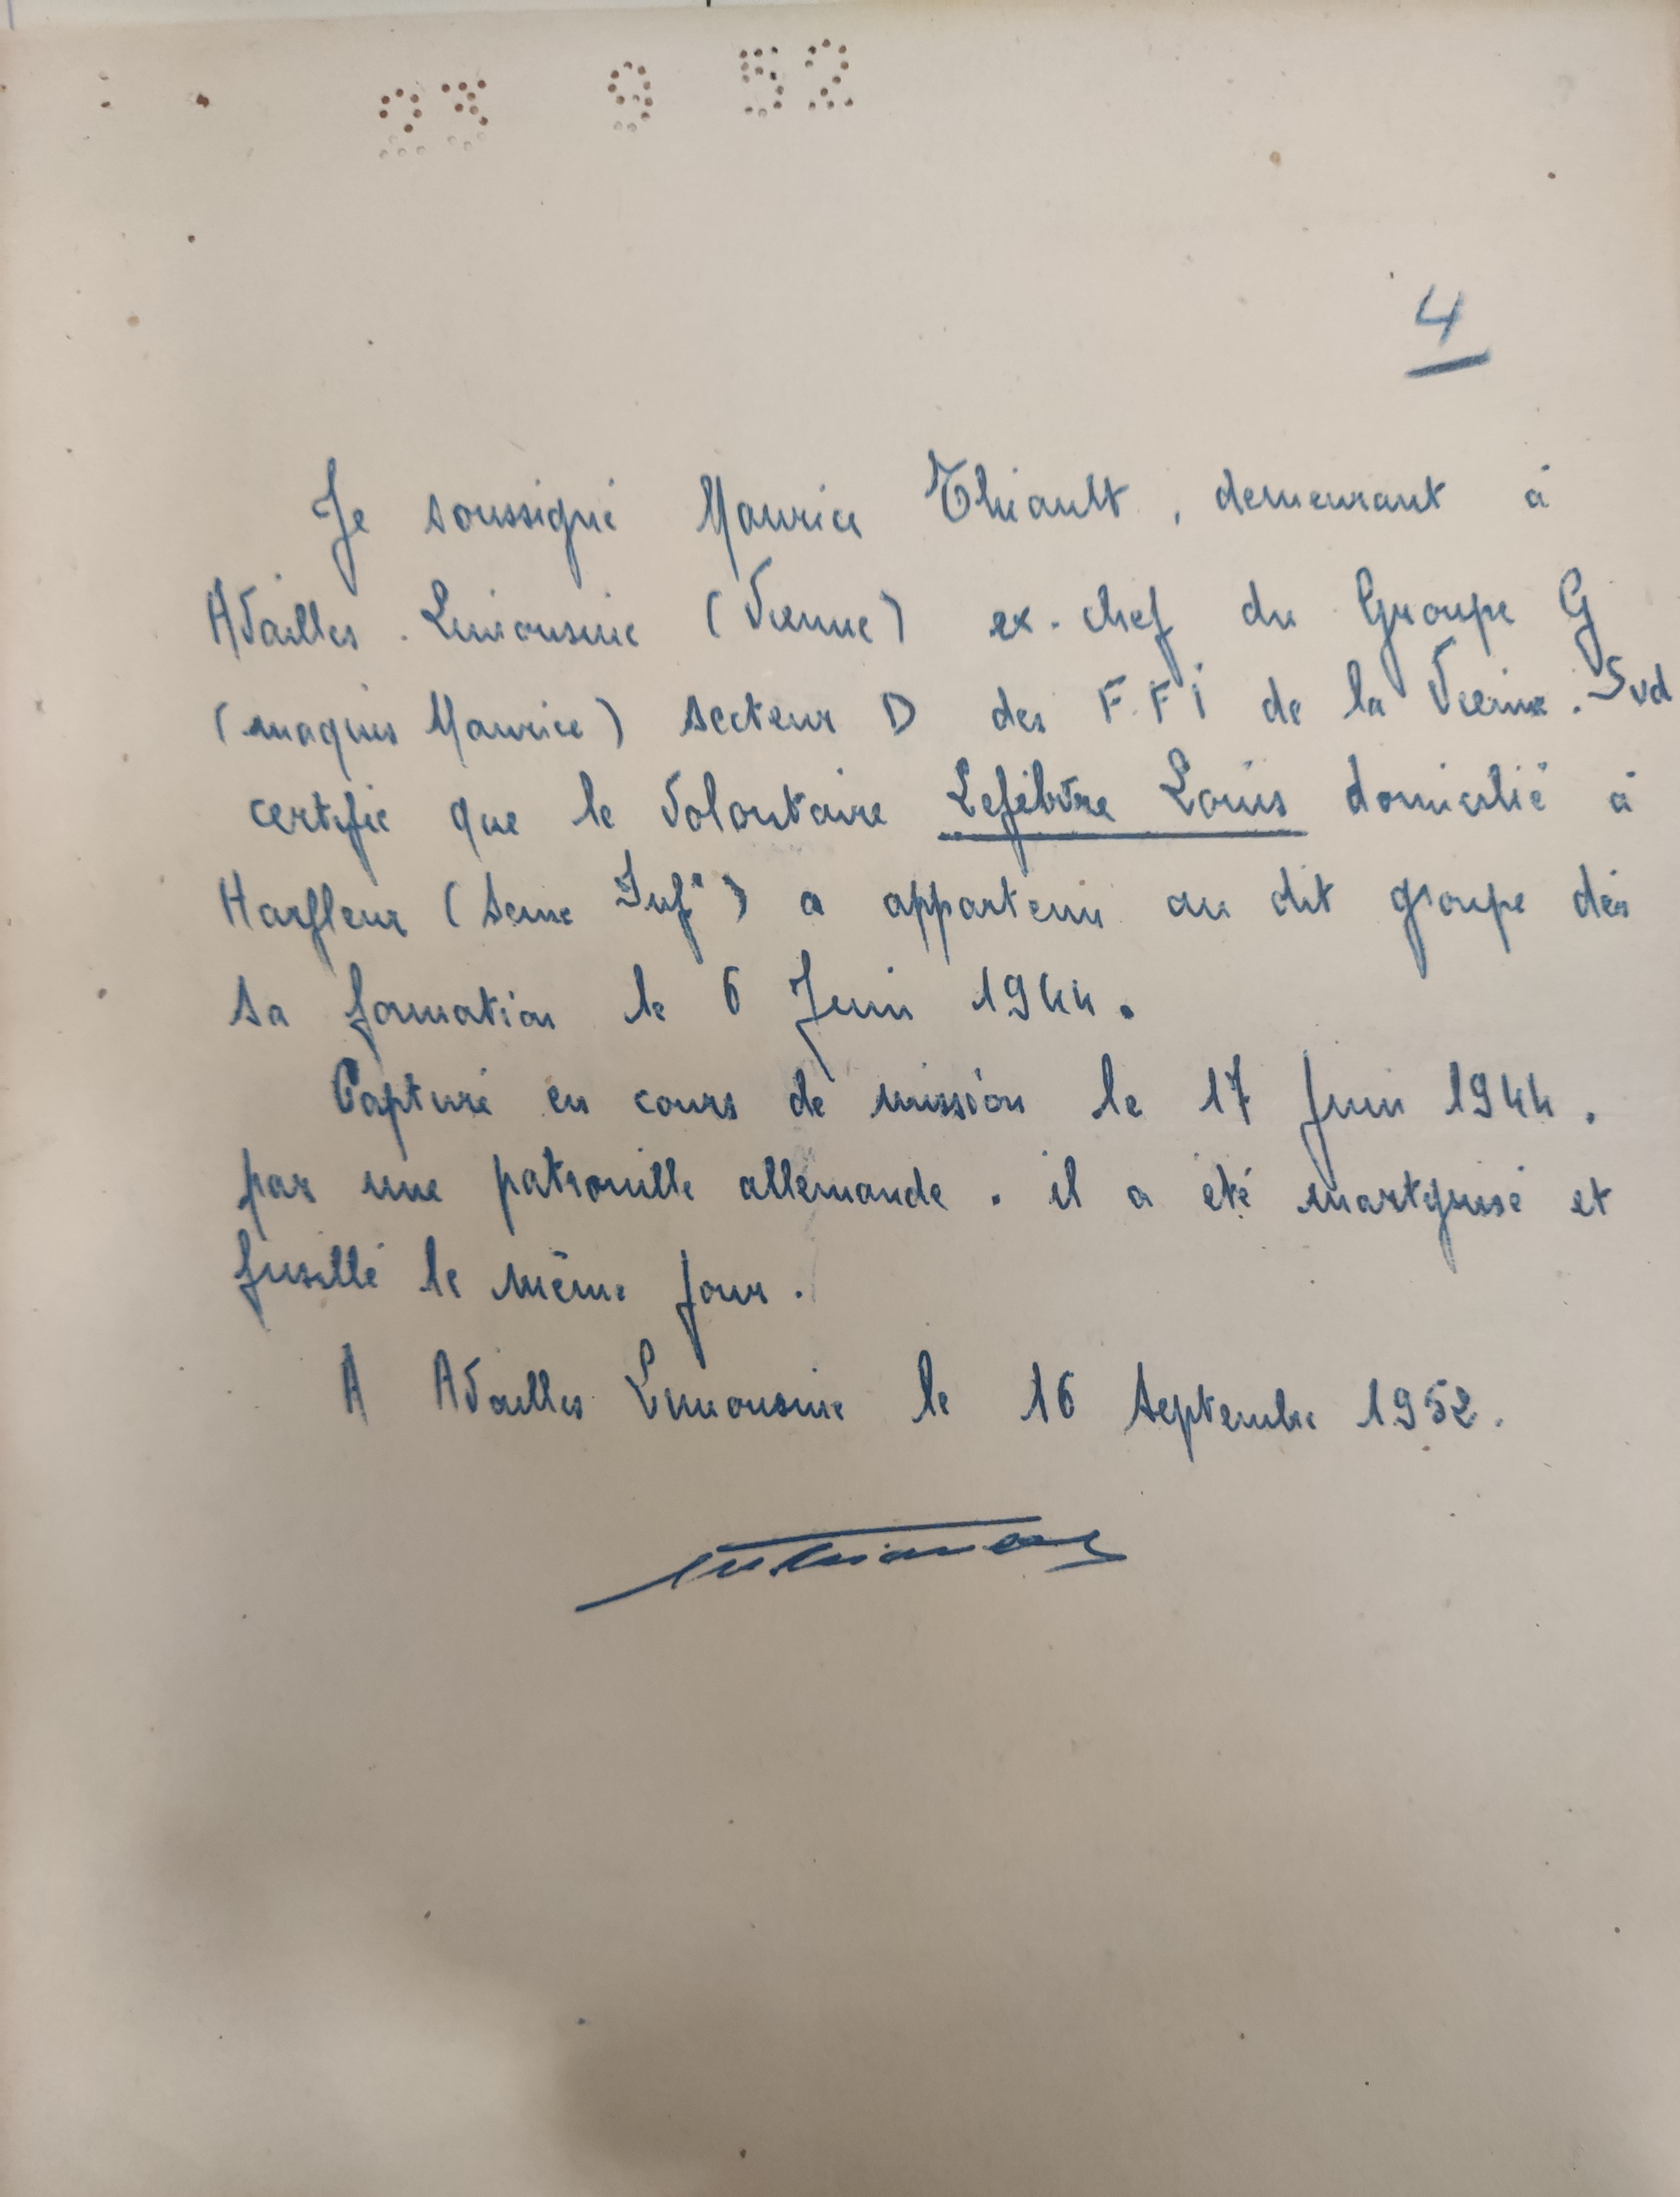 23 9 52
4
Je soussigné Maurice Thiault, demeurant à
Availles-Limousine (Vienne) ex-chef du Groupe G
(maquis Maurice) secteur D des F.F.I de la Vienne-Sud
certifie que le volontaire Lefebvre Louis domicilié à
Harfleur (Seine Infre) a appartenu au dit groupe dès
sa formation le 6 Juin 1944.
Capturé en cours de mission le 17 Juin 1944.
par une patrouille allemande. il a été martyrisé et
fusillé le même jour.
A Availles Limousine le 16 Septembre 1952.